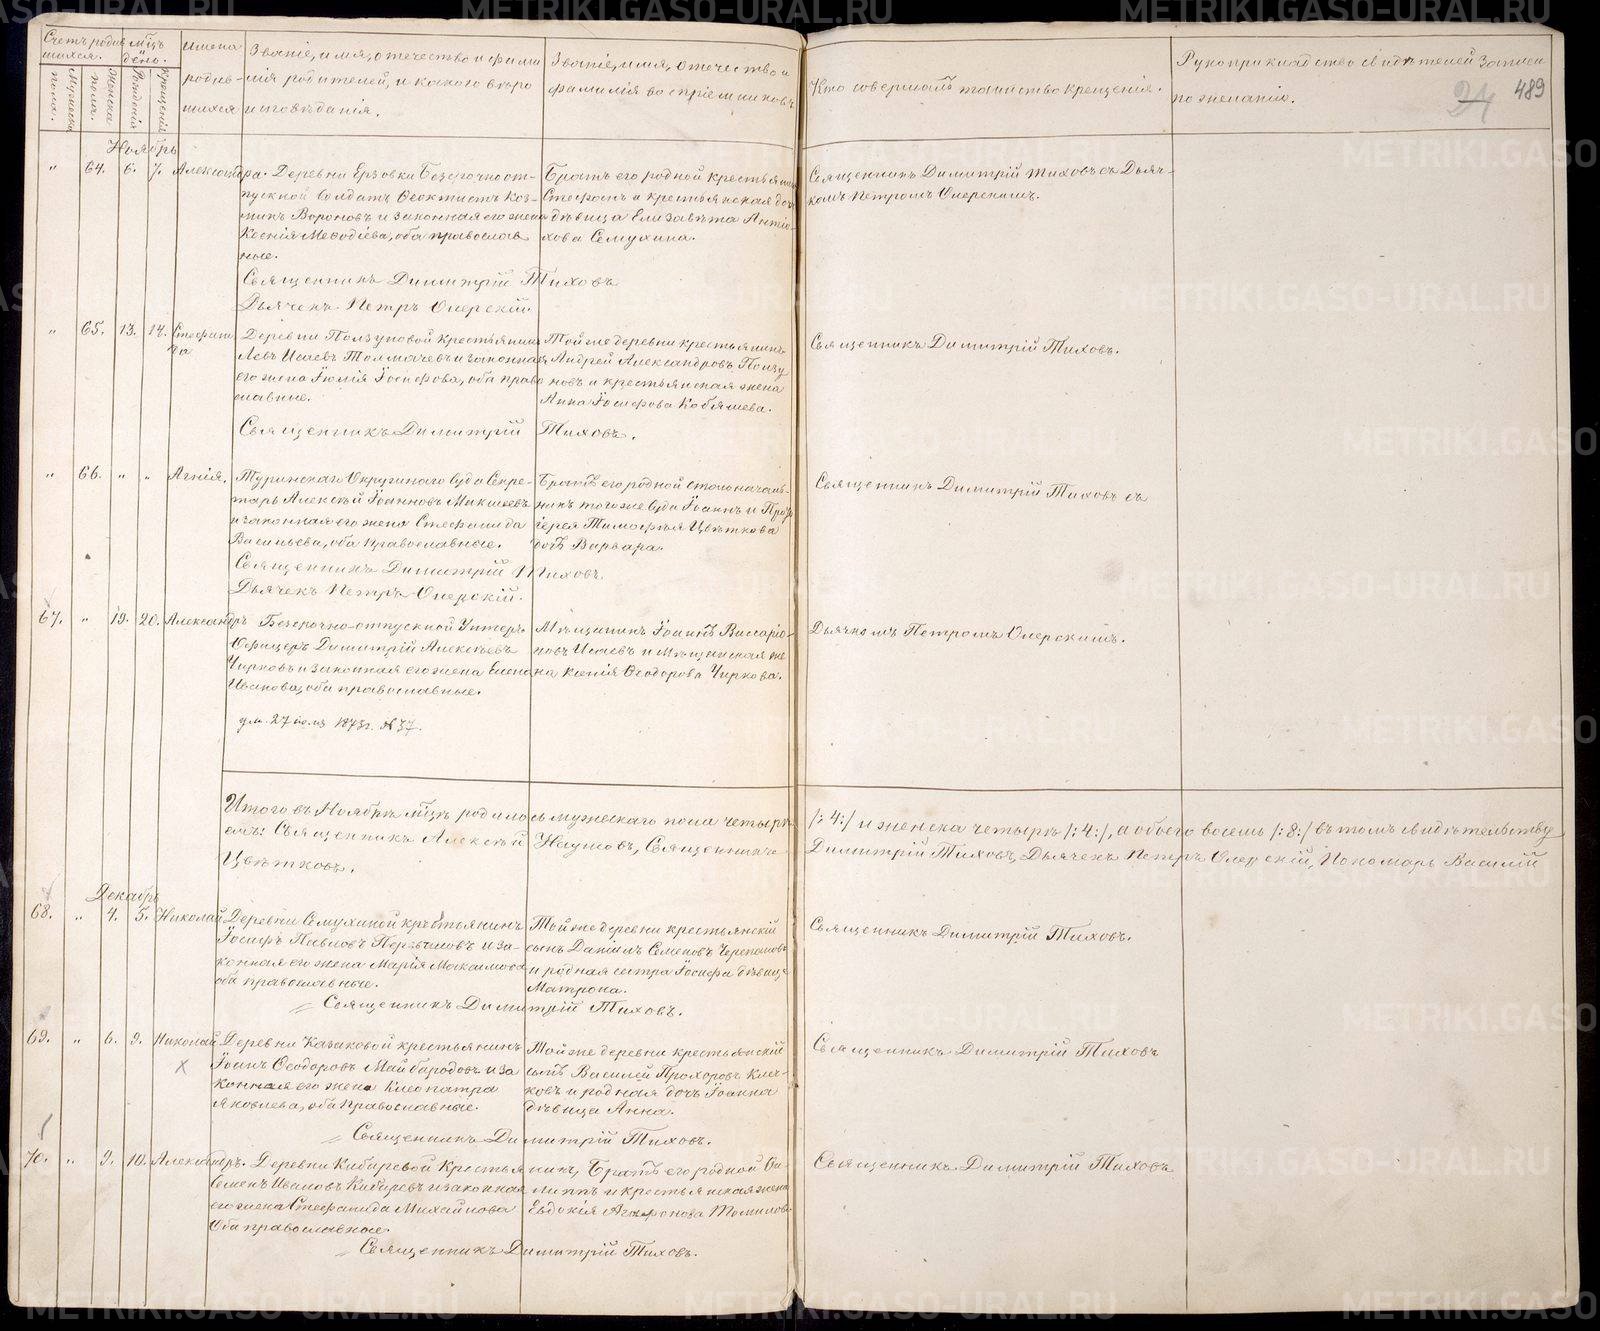 METRIKI.GASO-URAL.RU
Счетъ родив-
шихся.
Мѣсяцъ
день.
Имена
родив-
шихся
Званіе, имя, отечество и фами-
лія родителей, и какого вѣро-
исповѣданія.
Званіе, имя, отечество и
фамилія воспріемниковъ.
Кто совершалъ таинство крещенія.
Рукоприкладство свидѣтелей записи
по желанію.
489
24
Мужеска
пола.
Женска
пола.
Рожденія
Крещенія
Ноябрь
" 64. 6. 7. Александра.
Деревни Ерзовки Безсрочноот-
пускной солдатъ Ѳеоктистъ Коз-
минъ Вороновъ и законная его жена
Ксенія Меѳодіева, оба православ
ные.
Братъ его родной крестьянинъ
Стефанъ и крестьянская доч
дѣвица Елизавѣта Антіо-
хова Семухина.
Священникъ Димитрій Тиховъ съ Дьяч-
комъ Петромъ Озерскимъ.
Священникъ Димитрій Тиховъ
Дьячекъ Петръ Озерскій
" 65. 13. 14. Стефани
да
Деревни Ползуновой крестьянинъ
Левъ Исаевъ Толмачевъ и законная
его жена Іюлія Іосифова, оба право
славные.
Той же деревни крестьянинъ
Андрей Александровъ Ползу
новъ и крестьянская жена
Анна Іосифова Кобяшева.
Священникъ Димитрій Тиховъ.
Священникъ Димитрій Тиховъ.
" 66. " " Агнія.
Туринскаго Окружнаго Суда Секре-
тарь Алексѣй Іоанновъ Микшеевъ
и законная его жена Стефанида
Васильева, оба православные.
Братъ его родной столоначаль-
никъ того же суда Іоаннъ и Прото
іерея Тимоѳея Цвѣткова
дочь Варвара.
Священникъ Димитрій Тиховъ съ
Священникъ Димитрій Тиховъ.
Дьячекъ Петръ Озерскій.
67. " 19. 20. Александръ
Безсрочно-отпускной Унтеръ
Офицеръ Димитрій Алексѣевъ
Чирковъ и законная его жена Елена
Иванова, оба православные.
Мѣщанинъ Іоаннъ Виссаріо-
новъ Исаевъ и Мѣщанская же
на Ксенія Ѳеодорова Чиркова.
Дьячкомъ Петромъ Озерскимъ.
27 1873г. № 37.
Итого въ Ноябрѣ мѣсяцѣ родилось мужескаго пола четыре /:4:/ и женска четыре /:4:/, а обоего восемь /:8:/ въ томъ свидѣтельству
емъ: Священникъ Алексѣй Наумовъ, Священникъ Димитрій Тиховъ, Дьячекъ Петръ Озерскій, Пономарь Василій
Цвѣтковъ.
Декабрь
68. " 4. 5. Николай
Деревни Семухиной крѣстьянинъ
Іосифъ Павловъ Первышовъ и за-
конная его жена Марія Максимова
оба православные.
Той же деревни крестьянскій
сынъ Даніилъ Семеновъ Черепановъ
и родная сестра Іосифа дѣвица
Матрона.
Священникъ Димитрій Тиховъ.
Священникъ Димитрій Тиховъ.
69. " 6. 9. Николай
Деревни Казаковой крестьянинъ
Іоанъ Ѳеодоровъ Майбородовъ и за
конная его жена Клеопатра
Яковлева, оба православные.
Той же деревни крестьянскій
сынъ Василей Прохоровъ Клеч-
ковъ и родная дочь Іоанна
дѣвица Анна.
Священникъ Димитрій Тиховъ
Священникъ Димитрій Тиховъ.
70. " 9. 10. Александръ.
Деревни Кибиревой Крестьянинъ,
Семенъ Ивановъ Кибиревъ и законная
его жена Стефанида Михайлова
Оба православные.
Братъ его родной Фи-
липпъ и крестьянская жена
Евдокія Томилова
Священникъ Димитрій Тиховъ
Священникъ Димитрій Тиховъ.